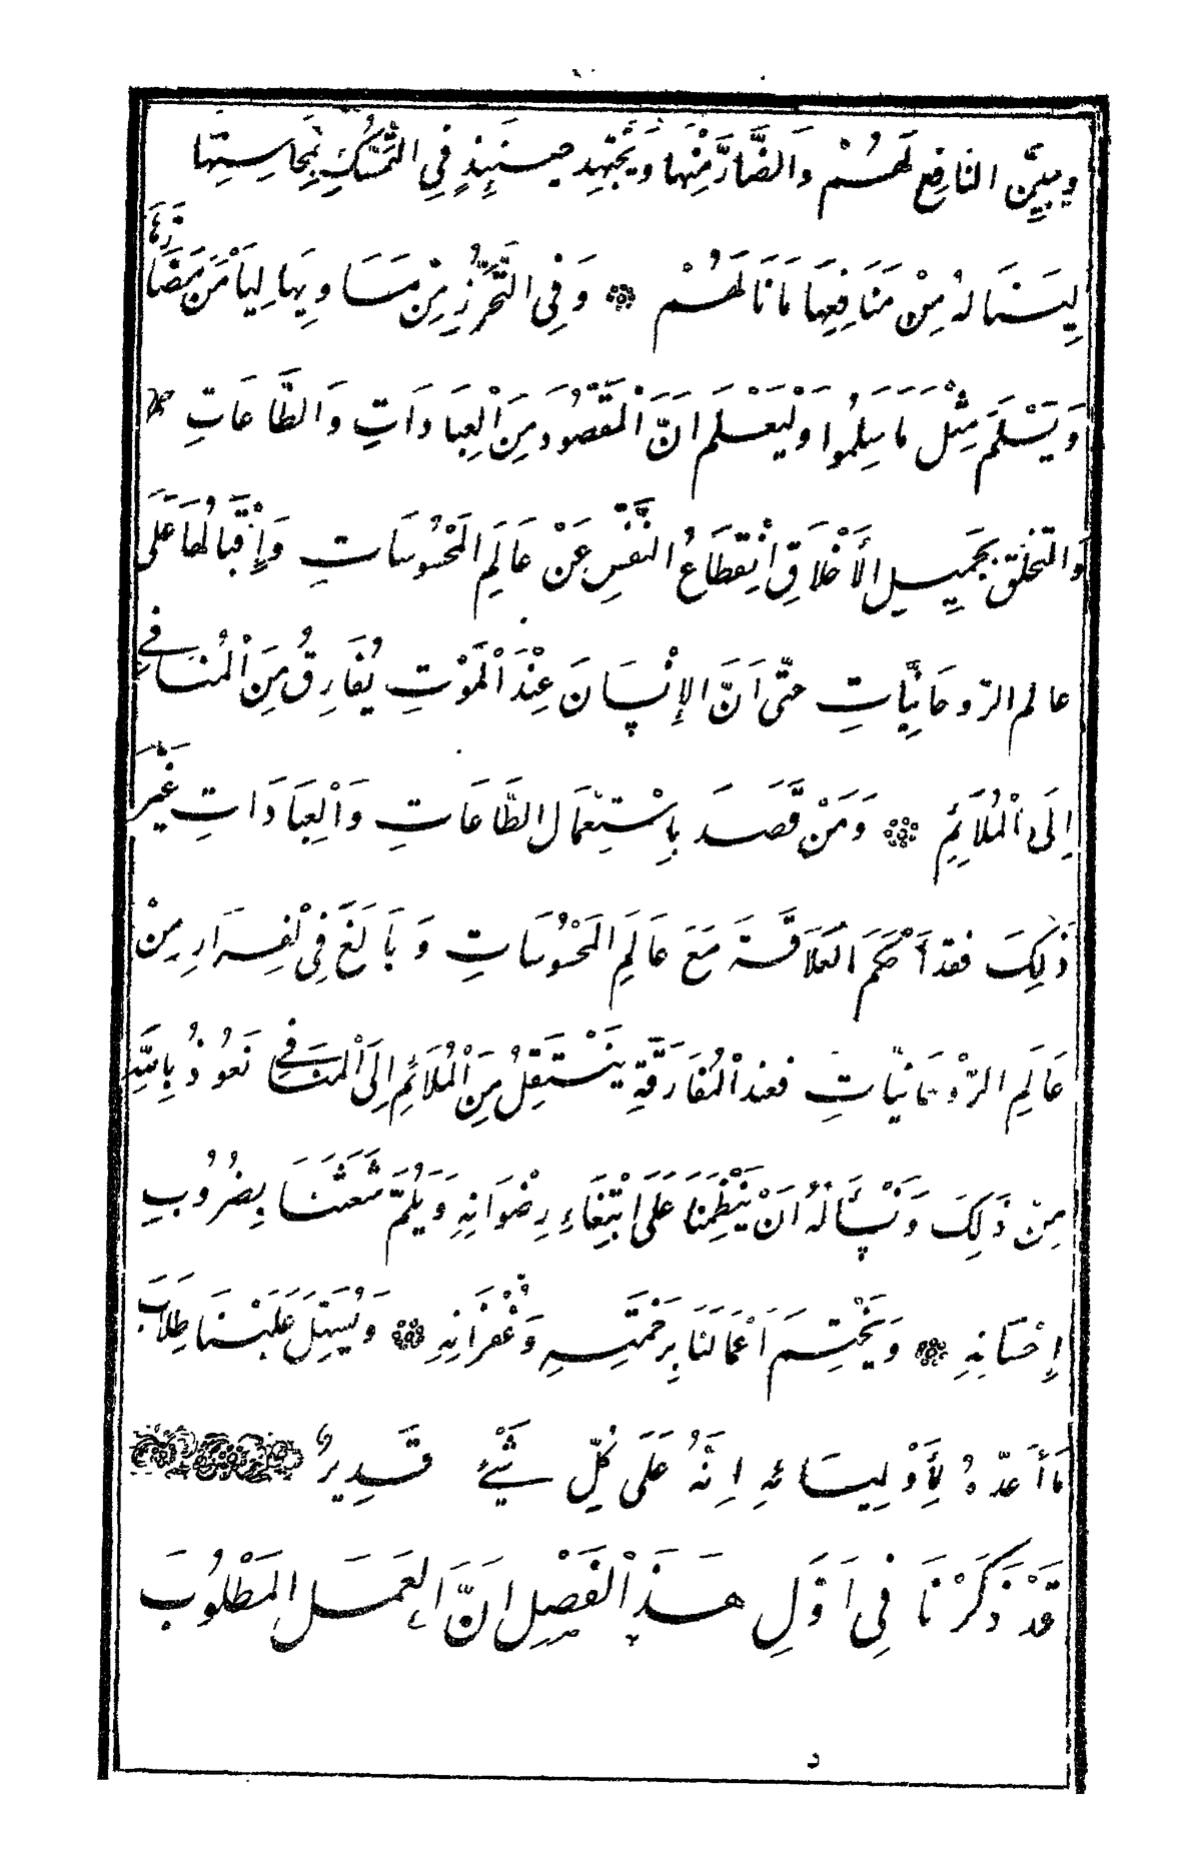 وبيِّن النافِع لَهُمْ وَالضَّارّ مِنْهَا وَيَجْتَهِد حينَئِذٍ فِي التَّمَسُّكِ بِمَحَاسِنِهَا
لِيَنَالهُ مِنْ مَنَافِعِهَا مَا نَالَهُمْ ۞ وَفِي التَّحَرُّزِ مِنْ مَسَاوِيهَا لِيَأْمَنَ مَضَارَّهَا
وَيَسْلَمَ مِثْلَ مَا سَلِمُوا وَلْيَعْلَم اَنَّ الْمَقْصُودَ مِنَ الْعِبَادَاتِ وَالطَّاعَاتِ
وَالتخلق بجَمِيلِ الأَخْلَاقِ انْقِطَاعُ النَّفْسِ عَنْ عَالَمِ المَحْسُوسَاتِ وَإِقْبَالُهَا عَلَى
عالم الرّوحَانِيَّاتِ حتّى اَنَّ الإِنْسَانَ عِنْدَ الْمَوْتِ يُفَارِقُ مِنَ الْمُنَافِي
اِلَى الْمُلَائِمِ ۞ وَمَنْ قَصَدَ بِاسْتِعْمَالِ الطَّاعَاتِ وَالْعِبَادَاتِ غَيْرَ
ذَلِكَ فقد أَحْكَمَ العَلَاقَةَ مَعَ عَالَمِ المَحْسُوسَاتِ وَبَالَغَ فِي الْفِرَارِ مِنْ
عَالَمِ الرّوْحَانيّاتِ فعند الْمُفَارَقَةِ يَنْتَقِلُ مِنَ الْمُلَائِمِ اِلَى الْمُنَافِي نَعُوذُ بِاللهِ
مِنْ ذَلِكَ وَنَسْأَلهُ اَنْ يَنْظِمَنَا عَلَى ابْتِغَاءِ رِضْوَانِهِ وَيَلُمَّ شَعَثَنَا بِضُرُوبِ
اِحْسَانِهِ ۞ وَيَخْتِمَ اَعْمَالَنَا بِرَحْمَتِهِ وَغُفْرَانِهِ ۞ وَيُسَهِّلَ عَلَيْنَا طِلَابَ
مَا أَعدّهُ لِأَوْلِيَائهِ اِنَّهُ عَلَى كُلِّ شَيْءٍ قَدِيرٌ
قَدْ ذَكَرْنَا فِي اَوَّلِ هَذَا الْفَصْلِ اَنَّ العَمَلَ المَطْلُوبَ